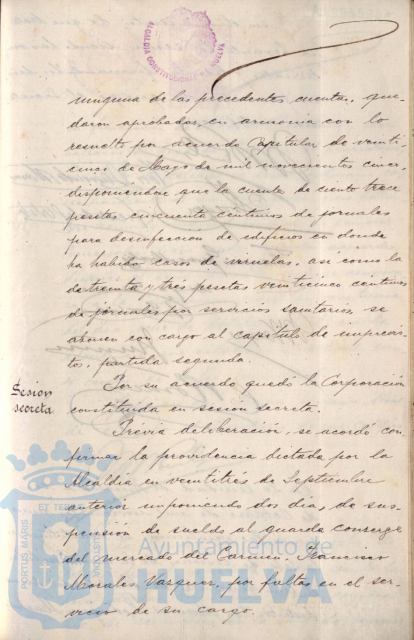 ALCALDIA CONSTITUCIONAL HUELVA
ninguna de las precedentes cuentas, que-
daron aprobadas, en armonia con lo
resuelto por acuerdo Capitular de veinti
cinco de Mayo de mil novecientos cinco,
disponiéndose que la cuenta de ciento trece
pesetas cincuenta centimos de jornales
para desinfeccion de edificios en donde
ha habido casos de viruelas, asi como la
de treinta y tres pesetas veinticinco centimos
de jornales por servicios sanitarios, se
abonen con cargo al capitulo de imprevis-
tos, partida segunda.
Por su acuerdo quedó la Corporación
constituida en sesión secreta.
Sesion
secreta
Prévia deliberación, se acordó con
firmar la providencia dictada por la
Alcaldia en veintitrés de Septiembre
anterior imponiendo dos dias, de sus-
pensión de sueldo al guarda conserge
del mercado del Carmen, Francisco
Morales Vazquez, por faltas en el ser-
vicio de su cargo.
PORTUS MARIS ET TERRÆ CUSTODIA
Ayuntamiento de
HUELVA